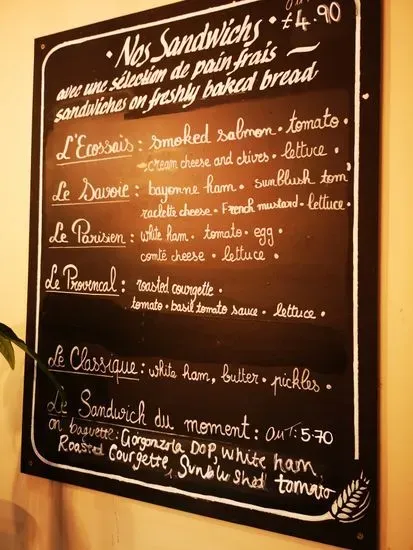 £4.90
• Nos Sandwichs •
avec une sélection de pain frais
sandwiches on freshly baked bread
L'Ecossais : smoked salmon • tomato •
cream cheese and chives • lettuce •
Le Savoie : bayonne ham • sunblush tom'
raclette cheese • French mustard • lettuce •
Le Parisien : white ham • tomato • egg •
comté cheese • lettuce •
Le Provencal : roasted courgette •
tomato • basil tomato sauce • lettuce •
Le Classique : white ham, butter • pickles •
Le Sandwich du moment : OUT: 5.70
on baguette: Gorgonzola DOP, white ham
Roasted Courgette, Sunblushed tomato